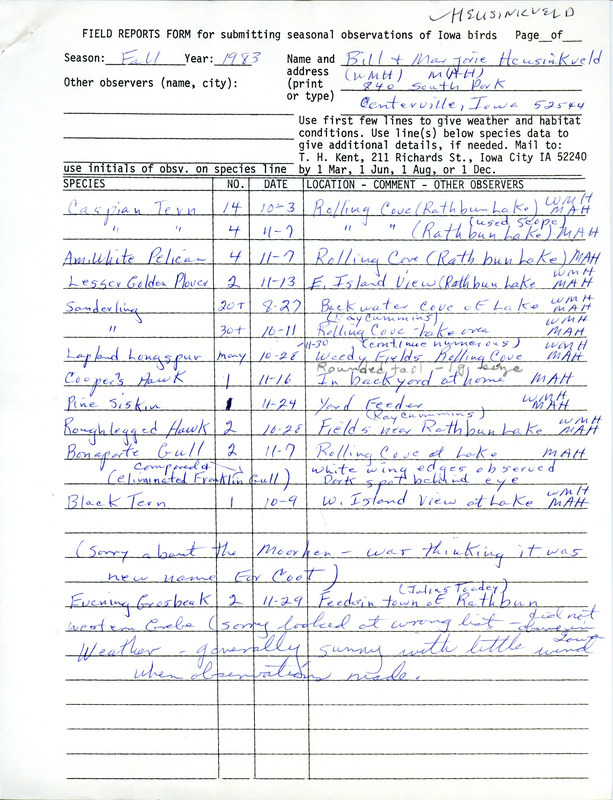 HEUSINKVELD
FIELD REPORTS FORM for submitting seasonal observations of Iowa birds Page__of___
Season: Fall Year: 1983 Name and Bill + Marjorie Heusinkveld
address (WMH) MAH)
Other observers (name, city): (print 840 South Park
or type) Centerville, Iowa 52544
Use first few lines to give weather and habitat
conditions. Use line(s) below species data to
give additional details, if needed. Mail to:
T. H. Kent, 211 Richards St., Iowa City IA 52240
use initials of obsv. on species line by 1 Mar, 1 Jun, 1 Aug, or 1 Dec.
SPECIES NO. DATE LOCATION - COMMENT - OTHER OBSERVERS
Caspian Tern 14 10-3 Rolling Cove (Rathbun Lake) WMH MAH
(used scope)
" " 4 11-7 " " (Rathbun Lake) MAH
Am. White Pelican 4 11-7 Rolling Cove (Rathbun Lake) MAH
Lesser Golden Plover 2 11-13 E. Island View (Rathbun Lake WMH MAH
Sanderling 20+ 8-27 Backwater Cove of Lake WMH MAH
(Ray Cummins)
" 30+ 10-11 Rolling Cove - lake area WMH MAH
11-30 (continue numerous)
Lapland Longspur many 10-28 Weedy Fields Rolling Cove WMH MAH
Rounded tail - lg. size
Cooper's Hawk 1 11-16 In backyard at home MAH
Pine Siskin 1 11-24 Yard Feeder WMH MAH
(Ray Cummins)
Roughlegged Hawk 2 10-28 Fields near Rathbun Lake WMH MAH
Bonaparte Gull 2 11-7 Rolling Cove at Lake MAH
compared white wing edges observed
(eliminated Franklin Gull) Dark spot behind eye
Black Tern 1 10-9 W. Island View at Lake WMH MAH
(Sorry about the Moorhen - was thinking it was
new name for Coot)
(Julius Toadey)
Evening Grosbeak 2 11-29 Feeder in town of Rathbun
Western Grebe (sorry looked at wrong list - did not
Weather - generally sunny with little wind
when observations made.